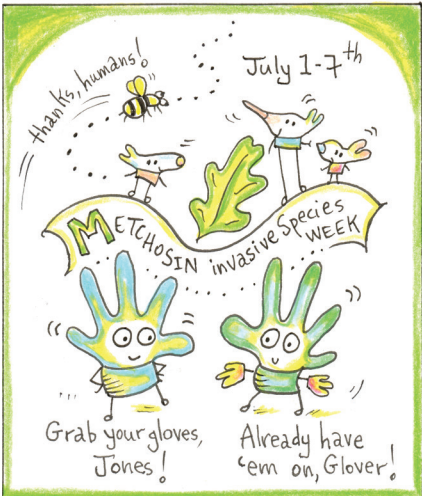 thanks, humans!
July 1-7th
METCHOSIN invasive Species
WEEK
Grab your gloves,
Jones!
Already have
'em on, Glover!